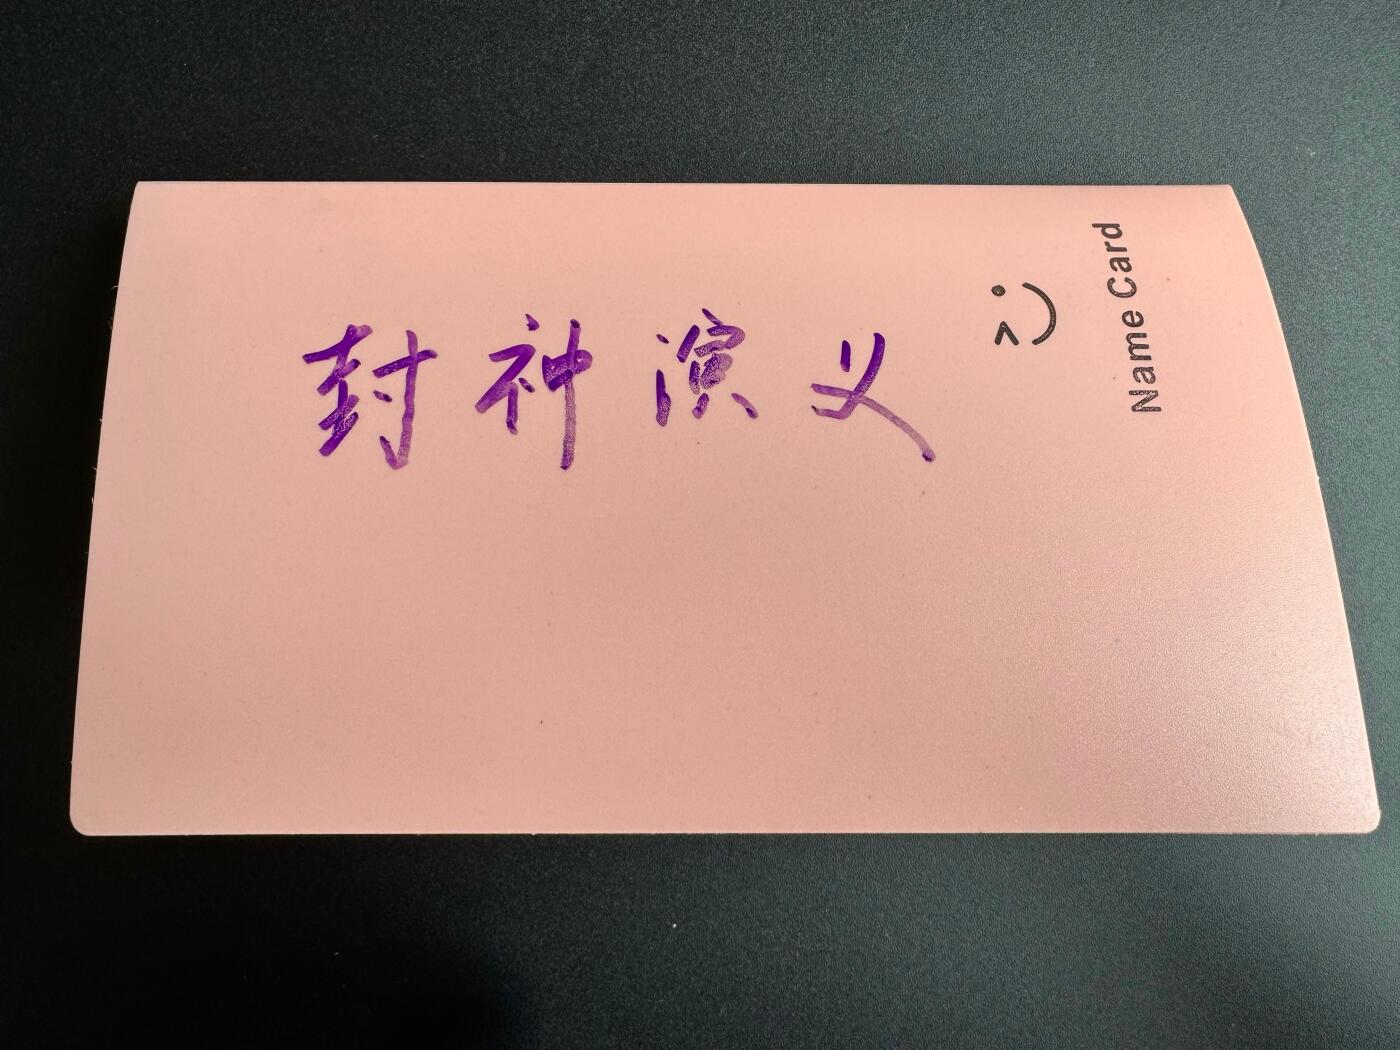 封神演义
Name Card